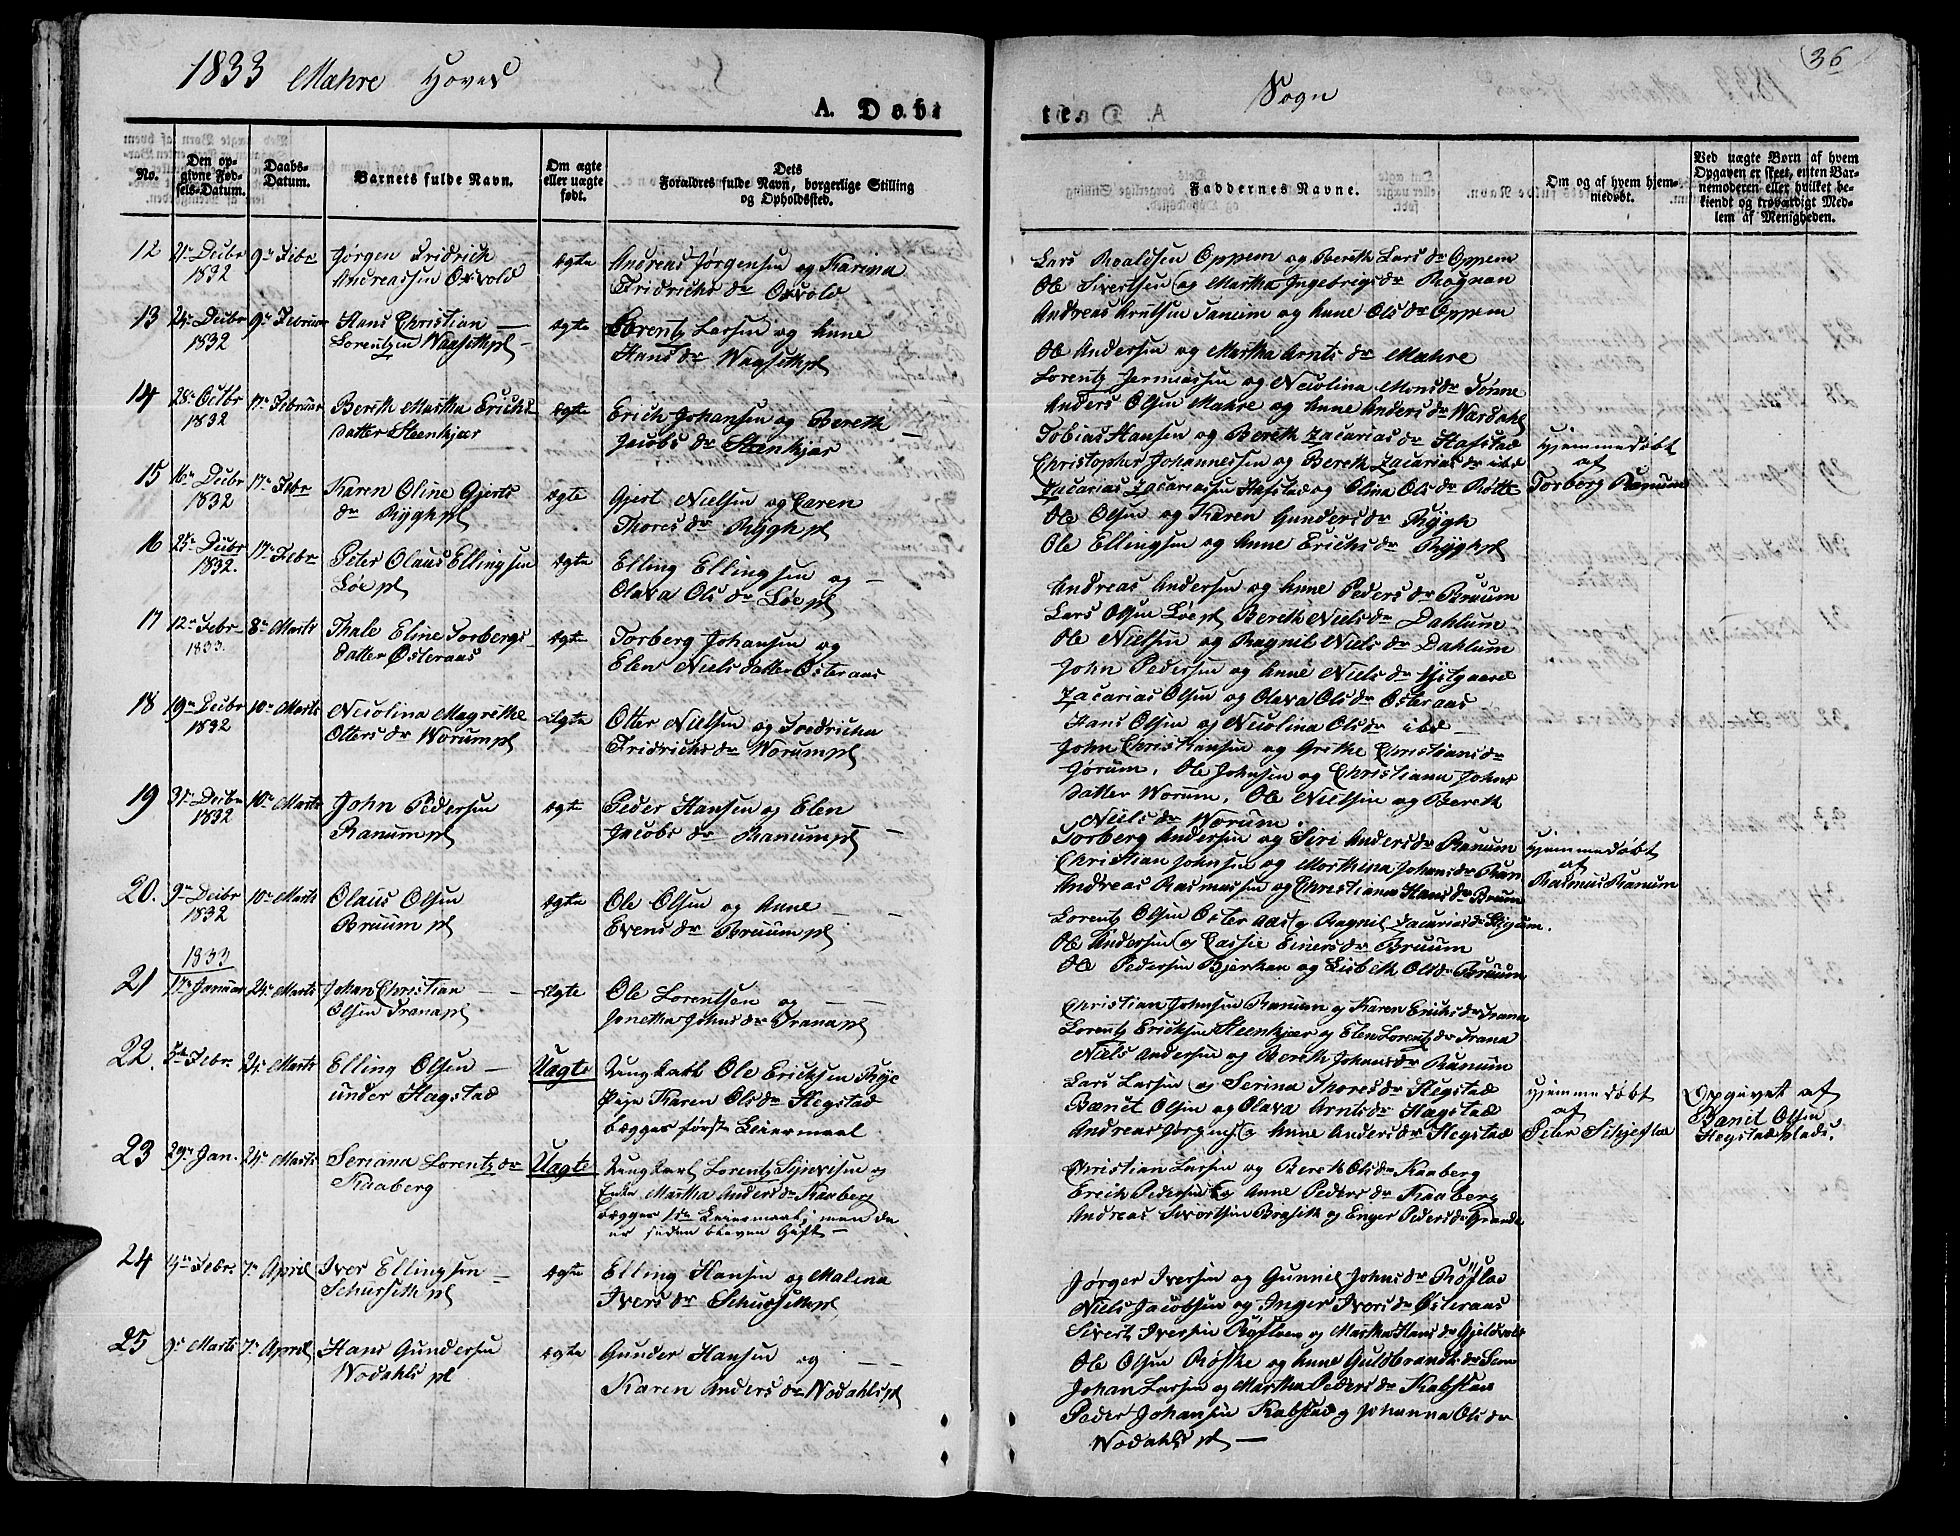 1833 Mahre Hoved Sogn
36
A. Døbte.
No.
Den opgivne Fødsels-Datum.
Daabs-Datum.
Barnets fulde Navn.
Om ægte eller uægte født.
Dets Forældres fulde Navn, borgerlige Stilling og Opholdssted.
Faddernes Navne.
Om og af hvem hjemmedøbt.
Ved uægte Børn af hvem Opgaven er skeet, enten Barnemoderen eller hvilket bekiendt og troværdigt Medlem af Menigheden.
12 Decbr 1832 9de Febr
Jørgen Fridrich
Andreassen Oxvold
ægte
Andreas Jørgensen og Karina
Fridrichs dr Oxvold
Lars Roaldsen Oppem og Bereth Lars dr Oppem
Ole Sivertsen og Martha Ingebrigs dr Rognan
Andreas Arntsen Saneim og Anne Ols dr Oppem
13 Decbr 1832 9de Februar
Hans Christian
Lorentzen Waasethpl
ægte
Lorentz Larsen og Anne
Hans dr Waasethpl
Ole Andersen og Martha Arnts dr Mahre
Lorentz Jermiassen og Nicolina Mons dr Tønne
Anders Olsen Mahre og Anne Anders dr Wardahl
14 28de Octbr 1832 17de Februar
Bereth Martha Erichs
datter Steenkjær
ægte
Erich Johansen og Bereth
Jacobs dr Steenkjær
Tobias Hansen og Bereth Zacarias dr Hafstad
Christopher Johannessen og Bereth Zacarias dr ibd
Zacarias Zacariassen Hafstad og Olina Ols dr Røtte
Hjemmedøbt
af
Torberg Ranum
15 16de Decbr 1832 17de Febr
Karen Oline Gjerts
dr Ryghpl
ægte
Gjert Nielsen og Caren
Thores dr Ryghpl
Ole Olsen og Karen Gunders dr Rygh
Ole Ellingsen og Anne Erichs dr Ryghpl
16 25de Decbr 1832. 17de Febr
Peter Olaus Ellingsen
Løe pl
ægte
Elling Ellingsen og
Olava Ols dr Løe pl
Andreas Andersen og Anne Peders dr Bruum
Lars Olsen Løe pl Bereth Niels dr Dahlum
Ole Nielsen og Ragnil Niels dr Dahlum
17 12te Febr 1833. 8de Marts
Thale Eline Torbergs
datter Østeraas
ægte
Torberg Johansen og
Elen Niels datter Østeraas
John Pedersen og Anne Niels dr
Zacarias Olsen og Olava Ols dr Osteraas
Hans Olsen og Nicolina Ols dr ibd
18 19de Decbr 1832 10de Marts
Nicolina Magrethe
Otters dr Worumpl
Ægte
Otter Nielsen og Fredricha
Fridrichs dr Worumpl
John Christiansen og Grethe Christians dr
Jørum. Ole Johnsen og Christiana Johns
datter Worum. Ole Nielsen og Bereth
Niels dr Worum.
19 31te Decbr 1832 10de Marts
John Pedersen
Ranumpl
ægte
Peder Hansen og Elen
Jacobs dr Ranumpl
Torberg Andersen og Siri Anders dr Ranum
Christian Johnsen og Marthina Johans dr Ran
Andreas Rasmussen og Christiana Hans dr Bruum
Hjemmedøbt
af
Rasmus Ranum
20. 9de Decbr 1832 10de Marts
Olaus Olsen
Bruumpl
ægte
Ole Olsen og Anne
Evens dr Bruumpl
Lorentz Olsen Osteraas og Ragnil Zacarias dr
Ole Andersen og Einers dr Bruum
Ole Pedersen Bjerkan og Lisbeth Ols dr Bruum
1833
21 17de Januar 24de Marts
Johan Christian
Olsen Tranapl
Ægte
Ole Lorentsen og
Jonetha Johns dr Tranapl
Christian Johnsen Ranum og Karen Erichs dr Trana
Lorentz Erichsen Steenkjær og Elen Lorentz dr Trana
Niels Andersen og Bereth Johans dr Ranum
22. Febr. 24de Marts
Elling Olsen
under Hagstad
Uægte
Ungkarl Ole Erichsen
Pige Karen Ols dr Hegstad
begges første Leiermaal
Lars Larsen og Serina Thores dr Hegstad
Bænet Olsen og Olava Arnts dr Hagstad
Andreas Jørgens og Anne Anders dr Hegstad
Hjemmedøbt
af
Peter
Opgivet af
Olsen
Hegstadplads.
23 29de Jan. 24de Marts
Seriana Lorentz dr
Kaaberg
Uægte
Ungkarl Lorentz og
Enke Martha Anders dr Kaaberg
begges 1ste Leiermaal; men de
er siden bleven Gift
Christian Larsen og Bereth Ols dr Kaaberg
Erich Pedersen og Anne Peders dr Kaaberg
Andreas Sivertsen og Enger Peders dr
24 Febr. 7de April
Iver Ellingsen
Schursethpl
ægte
Elling Hansen og Malena
Ivers dr Schursethpl
Jørger Iversen og Gunnil Johns dr
Niels Jacobsen og Inger Ivers dr Østeraas
Sivert Iversen og Martha Hans dr
25 9de Marts 7de April
Hans Gundersen
Nodahls pl
ægte
Gunder Hansen og
Karen Anders dr Nodahlspl
Ole Olsen Røske og Anne Guldbrands dr Sem
Johan Larsen og Martha Peders dr Kalstad
Peder Johansen Kalstad og Johanna Ols dr
Nodahls pl